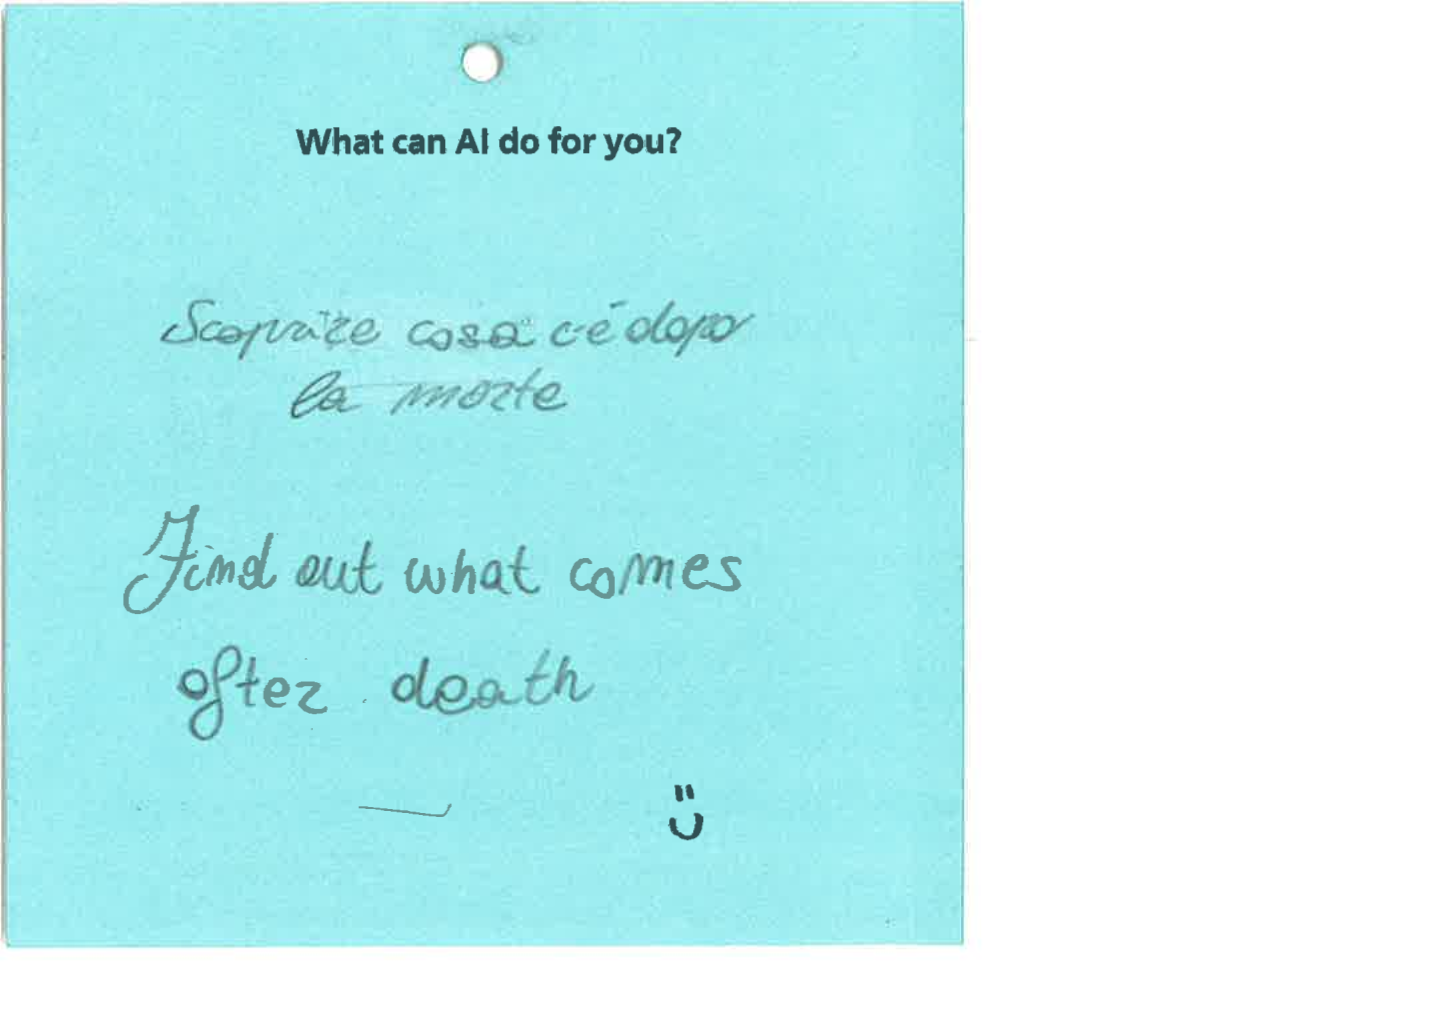 What can AI do for you?
Scoprire cosa c'é dopo
la morte
Find out what comes
after death